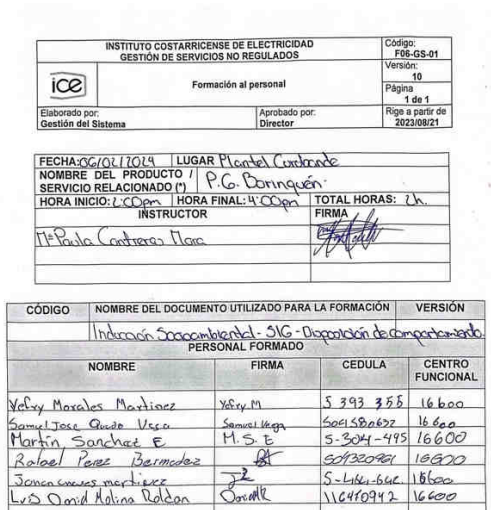 INSTITUTO COSTARRICENSE DE ELECTRICIDAD
GESTIÓN DE SERVICIOS NO REGULADOS
Código:
F06-GS-01
ice
Formación al personal
Versión:
10
Página
1 de 1
Elaborado por:
Gestión del Sistema
Aprobado por:
Director
Rige a partir de
2023/08/21
FECHA: 06/02/2024 LUGAR Plantel
NOMBRE DEL PRODUCTO / SERVICIO RELACIONADO (*) P.G. Borinquén
HORA INICIO: 2:00pm HORA FINAL: 4:00pm TOTAL HORAS: 2h.
INSTRUCTOR FIRMA
Mª Paula Contreras Mora
CÓDIGO NOMBRE DEL DOCUMENTO UTILIZADO PARA LA FORMACIÓN VERSIÓN
Inducción Socioambiental - SIG - Disposición de comportamiento.
PERSONAL FORMADO
NOMBRE FIRMA CEDULA CENTRO FUNCIONAL
Yefry Morales Martinez Yefry.M 5 393 355 16600
Samuel Jose 16600
Martín Sanchez E M.S.E 5-304-495 16600
Rafael Perez Bermudez 16600
martinez 16600
Luis David Molina Roldan 116470942 16600